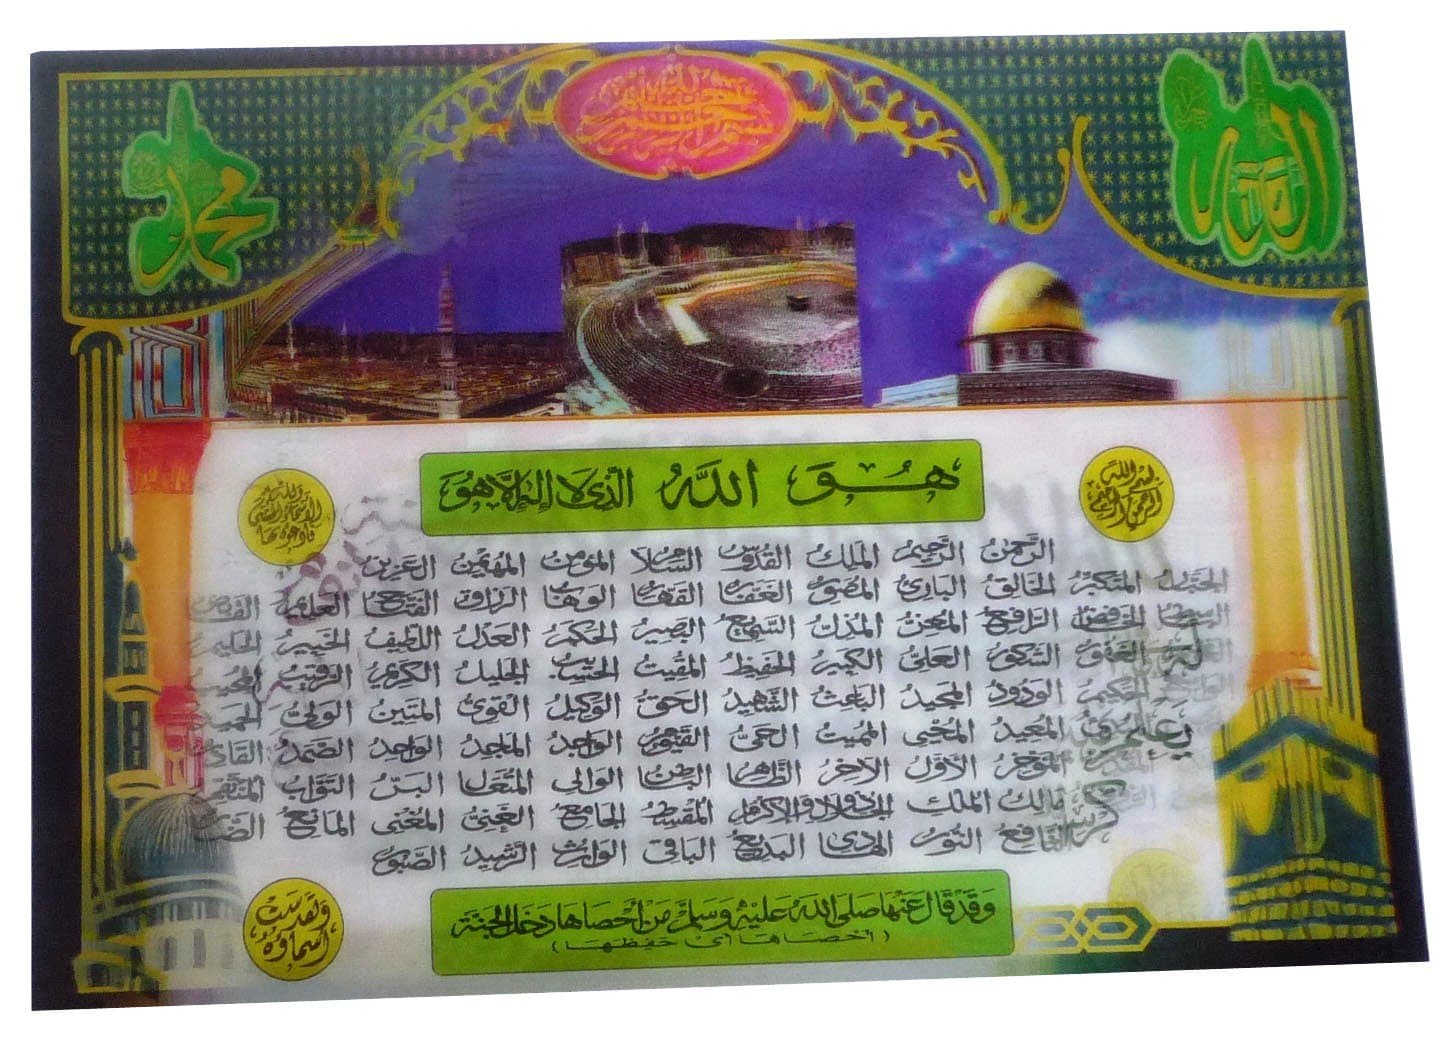 الله
محمد
بسم الله الرحمن الرحيم
هُوَ اللَّهُ الَّذِي لَا إِلَهَ إِلَّا هُوَ
بسم الله الرحمن الرحيم
ولله الأسماء الحسنى فادعوه بها
الرَّحْمٰنُ الرَّحِيمُ الْمَلِكُ الْقُدُّوسُ السَّلَامُ الْمُؤْمِنُ الْمُهَيْمِنُ الْعَزِيزُ
الجبار المتكبر الخالق البارئ المصور الغفار القهار الوهاب الرزاق الفتاح العليم القابض
الباسط الخافض الرافع المعز المذل السميع البصير الحكم العدل اللطيف الخبير الحليم
الغفور الشكور العلي الكبير الحفيظ المقيت الحسيب الجليل الكريم الرقيب المجيب
الواسع الحكيم الودود المجيد الباعث الشهيد الحق الوكيل القوي المتين الولي الحميد
المعيد المحيي المميت الحي القيوم الواجد الماجد الواحد الصمد القادر
المؤخر الأول الآخر الظاهر الباطن الوالي المتعال البر التواب المنتقم
مالك الملك ذو الجلال والإكرام المقسط الجامع الغني المغني المانع الضار
النافع النور الهادي البديع الباقي الوارث الرشيد الصبور
وَقَدْ قَالَ عَنْهَا صَلَّى اللهُ عَلَيْهِ وَسَلَّمَ مَنْ أَحْصَاهَا دَخَلَ الْجَنَّةَ
(أحصاها أي حفظها)
وتقدست أسماؤه